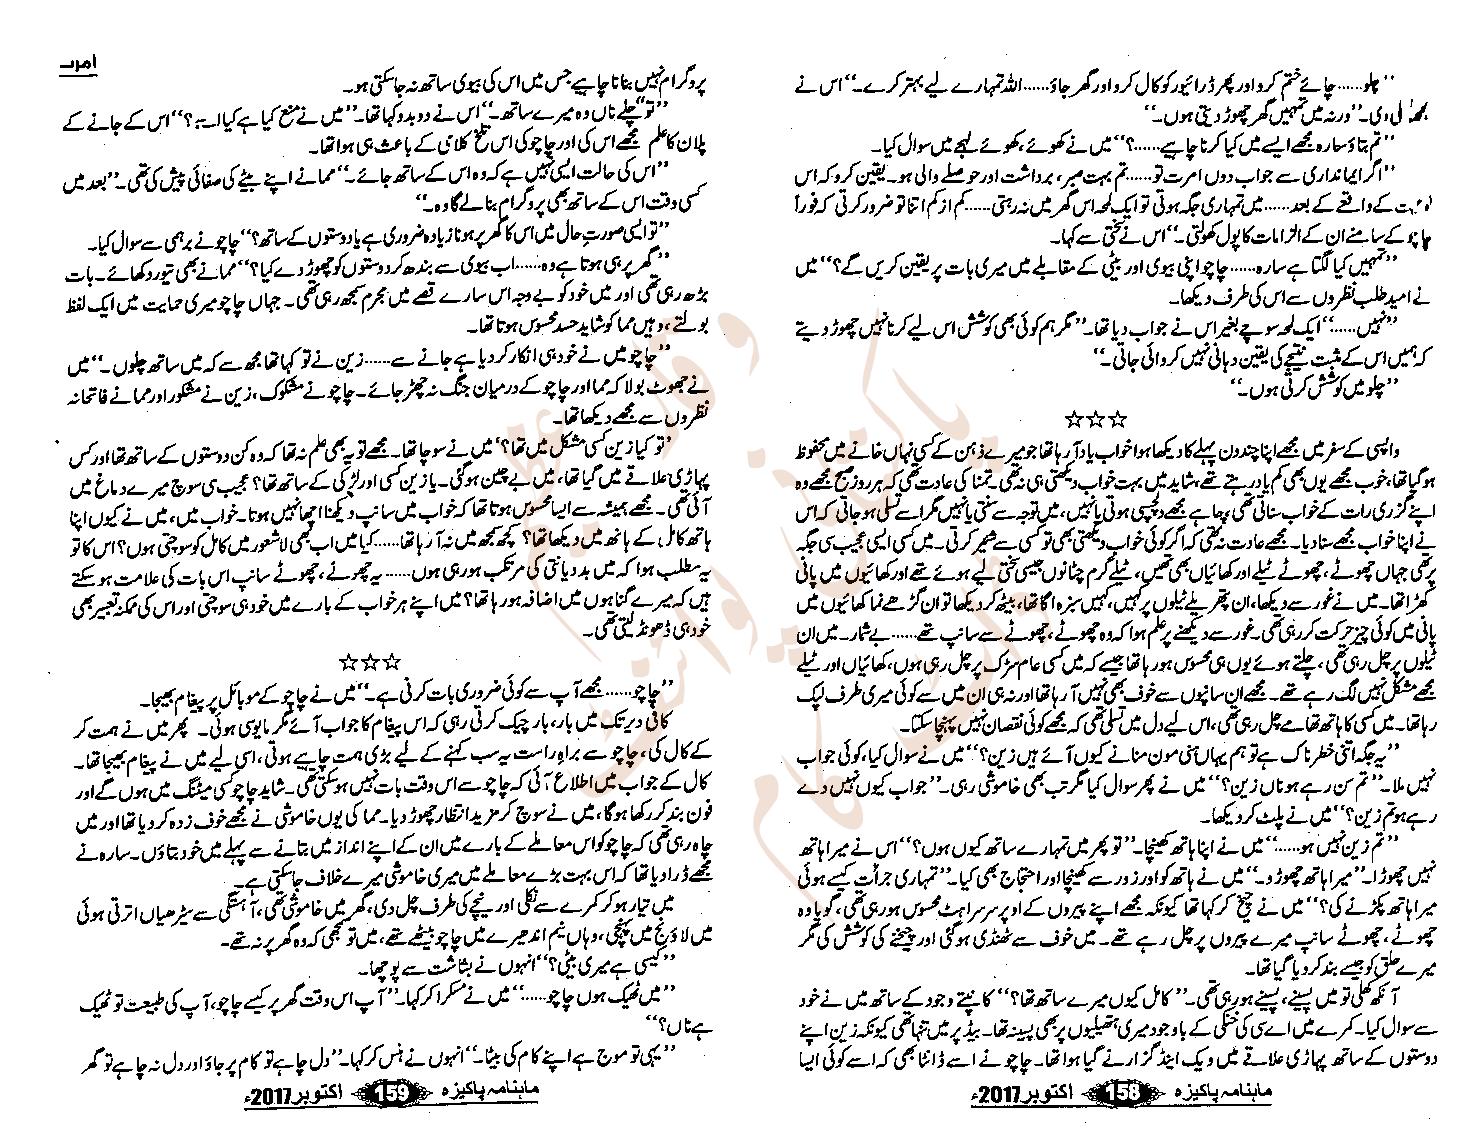 ”چلو...... چائے ختم کرو اور پھر ڈرائیور کو کال کرو اور گھر جاؤ...... اللہ تمہارے لیے بہتر کرے۔“ اس نے
لی دی۔ ”ورنہ میں تمہیں گھر چھوڑ دیتی ہوں۔“
”تم بتاؤ سارہ مجھے ایسے میں کیا کرنا چاہیے......؟“ میں نے کھوئے، کھوئے لہجے میں سوال کیا۔
”اگر ایمانداری سے جواب دوں امرت تو...... تم بہت صبر، برداشت اور حوصلے والی ہو۔ یقین کرو کہ اس
کے واقعے کے بعد...... میں تمہاری جگہ ہوتی تو ایک لمحہ اس گھر میں نہ رہتی...... کم از کم اتنا تو ضرور کرتی کہ فوراً
چاچو کے سامنے ان کے الزامات کا پول کھولتی۔“ اس نے سختی سے کہا۔
”تمہیں کیا لگتا ہے سارہ...... چاچو اپنی بیوی اور بیٹی کے مقابلے میں میری بات پر یقین کریں گے؟“ میں
نے امید طلب نظروں سے اس کی طرف دیکھا۔
”نہیں......“ ایک لمحہ سوچے بغیر اس نے جواب دیا تھا۔ ”مگر ہم کوئی بھی کوشش اس لیے کرنا نہیں چھوڑ دیتے
کہ ہمیں اس کے مثبت نتیجے کی یقین دہانی نہیں کروائی جاتی۔“
”چلو میں کوشش کرتی ہوں۔“
☆☆☆
واپسی کے سفر میں مجھے اپنا چند دن پہلے کا دیکھا ہوا خواب یاد آ رہا تھا جو میرے ذہن کے کسی نہاں خانے میں محفوظ
ہو گیا تھا، خوب مجھے یوں بھی کم یاد رہتے تھے، شاید میں بہت خواب دیکھتی ہی نہ تھی۔ تمنا کی عادت تھی کہ ہر روز صبح مجھے وہ
اپنے گزری رات کے خواب سناتی تھی چاہے مجھے دلچسپی ہوتی یا نہیں، میں توجہ سے سنتی یا نہیں مگر اسے تسلی ہو جاتی کہ اس
نے اپنا خواب مجھے سنا دیا۔ مجھے عادت نہ تھی کہ اگر کوئی خواب دیکھتی بھی تو کسی سے شیئر کرتی۔ میں کسی ایسی عجیب سی جگہ
پر تھی جہاں چھوٹے، چھوٹے ٹیلے اور کھائیاں بھی تھیں، ٹیلے گرم چٹانوں جیسی سختی لیے ہوئے تھے اور کھائیوں میں پانی
کھڑا تھا۔ میں نے غور سے دیکھا، ان پتھریلے ٹیلوں پر کہیں، کہیں سبزہ اگا تھا، بیٹھ کر دیکھا تو ان گڑھے نما کھائیوں میں
پانی میں کوئی چیز حرکت کر رہی تھی۔ غور سے دیکھنے پر علم ہوا کہ وہ چھوٹے، چھوٹے سے سانپ تھے...... بے شمار۔ میں ان
ٹیلوں پر چل رہی تھی، چلتے ہوئے یوں ہی محسوس ہو رہا تھا جیسے کہ میں کسی عام سڑک پر چل رہی ہوں، کھائیاں اور ٹیلے
مجھے مشکل نہیں لگ رہے تھے۔ مجھے ان سانپوں سے خوف بھی نہیں آ رہا تھا اور نہ ہی ان میں سے کوئی میری طرف لپک
رہا تھا۔ میں کسی کا ہاتھ تھامے چل رہی تھی، اس لیے دل میں تسلی تھی کہ مجھے کوئی نقصان نہیں پہنچا سکتا۔
”یہ جگہ اتنی خطرناک ہے تو ہم یہاں ہنی مون منانے کیوں آئے ہیں زین؟“ میں نے سوال کیا، کوئی جواب
نہیں ملا۔ ”تم سن رہے ہو ناں زین؟“ میں نے پھر سوال کیا مگر تب بھی خاموشی رہی۔ ”جواب کیوں نہیں دے
رہے ہو تم زین؟“ میں نے پلٹ کر دیکھا۔
”تم زین نہیں ہو......“ میں نے اپنا ہاتھ کھینچا۔ ”تو پھر میں تمہارے ساتھ کیوں ہوں؟“ اس نے میرا ہاتھ
نہیں چھوڑا۔ ”میرا ہاتھ چھوڑ دو۔“ میں نے ہاتھ کو اور زور سے کھینچا اور احتجاج بھی کیا۔ ”تمہاری جرأت کیسے ہوئی
میرا ہاتھ پکڑنے کی؟“ میں نے چیخ کر کہا تھا کیونکہ مجھے اپنے پیروں کے اوپر سرسراہٹ محسوس ہو رہی تھی، گویا وہ
چھوٹے، چھوٹے سانپ میرے پیروں پر چل رہے تھے۔ میں خوف سے ٹھنڈی ہو گئی اور چیخنے کی کوشش کی مگر
میرے حلق کو جیسے بند کر دیا گیا تھا۔
آنکھ کھلی تو میں پسینے، پسینے ہو رہی تھی۔ ”کامل کیوں میرے ساتھ تھا؟“ کانپتے وجود کے ساتھ میں نے خود
سے سوال کیا۔ کمرے میں اے سی کی خنکی کے باوجود میری ہتھیلیوں پر بھی پسینہ تھا۔ بیڈ پر میں تنہا تھی کیونکہ زین اپنے
دوستوں کے ساتھ پہاڑی علاقے میں ویک اینڈ گزارنے گیا ہوا تھا۔ چاچو نے اسے ڈانٹا بھی کہ اسے کوئی ایسا
ماہنامہ پاکیزہ 158 اکتوبر 2017ء
امرت
پروگرام نہیں بنانا چاہیے جس میں اس کی بیوی ساتھ نہ جا سکتی ہو۔
”تو چلے ناں وہ میرے ساتھ۔“ اس نے دوبدو کہا تھا۔ ”میں نے منع کیا ہے کیا اسے؟“ اس کے جانے کے
پلان کا علم مجھے اس کی اور چاچو کی اس تلخ کلامی کے باعث ہی ہوا تھا۔
”اس کی حالت ایسی نہیں ہے کہ وہ اس کے ساتھ جائے۔“ مما نے اپنے بیٹے کی صفائی پیش کی تھی۔ ”بعد میں
کسی وقت اس کے ساتھ بھی پروگرام بنا لے گا وہ۔“
”تو ایسی صورتِ حال میں اس کا گھر پر ہونا زیادہ ضروری ہے یا دوستوں کے ساتھ؟“ چاچو نے برہمی سے سوال کیا۔
”گھر پر ہی ہوتا ہے وہ...... اب بیوی سے بندھ کر دوستوں کو چھوڑ دے کیا؟“ مما نے بھی تیور دکھائے۔ بات
بڑھ رہی تھی اور میں خود کو بے وجہ اس سارے قصے میں مجرم سمجھ رہی تھی۔ جہاں چاچو میری حمایت میں ایک لفظ
بولتے، وہیں مما کو شاید حسد محسوس ہوتا تھا۔
”چاچو میں نے خود ہی انکار کر دیا ہے جانے سے...... زین نے تو کہا تھا مجھ سے کہ میں ساتھ چلوں۔“ میں
نے جھوٹ بولا کہ مما اور چاچو کے درمیان جنگ نہ چھڑ جائے۔ چاچو نے مشکوک، زین نے مشکور اور مما نے فاتحانہ
نظروں سے مجھے دیکھا تھا۔
’تو کیا زین کسی مشکل میں تھا؟‘ میں نے سوچا تھا۔ مجھے تو یہ بھی علم نہ تھا کہ وہ کن دوستوں کے ساتھ تھا اور کس
پہاڑی علاقے میں گیا تھا، میں بے چین ہو گئی۔ یا زین کسی اور لڑکی کے ساتھ تھا؟ عجیب سی سوچ میرے دماغ میں
آئی تھی۔ مجھے ہمیشہ سے ایسا محسوس ہوتا تھا کہ خواب میں سانپ دیکھنا اچھا نہیں ہوتا۔ خواب میں، میں نے کیوں اپنا
ہاتھ کامل کے ہاتھ میں دیکھا تھا؟ کچھ سمجھ میں نہ آ رہا تھا...... کیا میں اب بھی لاشعور میں کامل کو سوچتی ہوں؟ اس کا تو
یہ مطلب ہوا کہ میں بددیانتی کی مرتکب ہو رہی ہوں...... یہ چھوٹے، چھوٹے سانپ اس بات کی علامت ہو سکتے
ہیں کہ میرے گناہوں میں اضافہ ہو رہا تھا؟ میں اپنے ہر خواب کے بارے میں خود ہی سوچتی اور اس کی ممکنہ تعبیر بھی
خود ہی ڈھونڈ لیتی تھی۔
☆☆☆
”چاچو...... مجھے آپ سے کوئی ضروری بات کرنی ہے۔“ میں نے چاچو کے موبائل پر پیغام بھیجا۔
کافی دیر تک میں بار، بار چیک کرتی رہی کہ اس پیغام کا جواب آئے مگر مایوسی ہوئی۔ پھر میں نے ہمت کر
کے کال کی، چاچو سے براہِ راست یہ سب کہنے کے لیے بڑی ہمت چاہیے ہوتی، اسی لیے میں نے پیغام بھیجا تھا۔
کال کے جواب میں اطلاع آئی کہ چاچو سے اس وقت بات نہیں ہو سکتی تھی۔ شاید چاچو کسی میٹنگ میں ہوں گے اور
فون بند کر رکھا ہوگا، میں نے سوچ کر مزید انتظار چھوڑ دیا۔ مما کی یوں خاموشی نے مجھے خوف زدہ کر دیا تھا اور میں
چاہ رہی تھی کہ چاچو کو اس معاملے کے بارے میں ان کے اپنے انداز میں بتانے سے پہلے میں خود بتاؤں۔ سارہ نے
مجھے ڈرا دیا تھا کہ اس بہت بڑے معاملے میں میری خاموشی میرے خلاف جا سکتی ہے۔
میں تیار ہو کر کمرے سے نکلی اور نیچے کی طرف چل دی، گھر میں خاموشی تھی، آہستگی سے سیڑھیاں اترتی ہوئی
میں لاؤنج میں پہنچی، وہاں نیم اندھیرے میں چاچو بیٹھے تھے، میں تو سمجھی کہ وہ گھر پر نہ تھے۔
”کیسی ہے میری بیٹی؟“ انہوں نے بشاشت سے پوچھا۔
”میں ٹھیک ہوں چاچو......“ میں نے مسکرا کر کہا۔ ”آپ اس وقت گھر پر کیسے چاچو، آپ کی طبیعت تو ٹھیک
ہے ناں؟“
”یہی تو موج ہے اپنے کام کی بیٹا۔“ انہوں نے ہنس کر کہا۔ ”دل چاہے تو کام پر جاؤ اور دل نہ چاہے تو گھر
ماہنامہ پاکیزہ 159 اکتوبر 2017ء